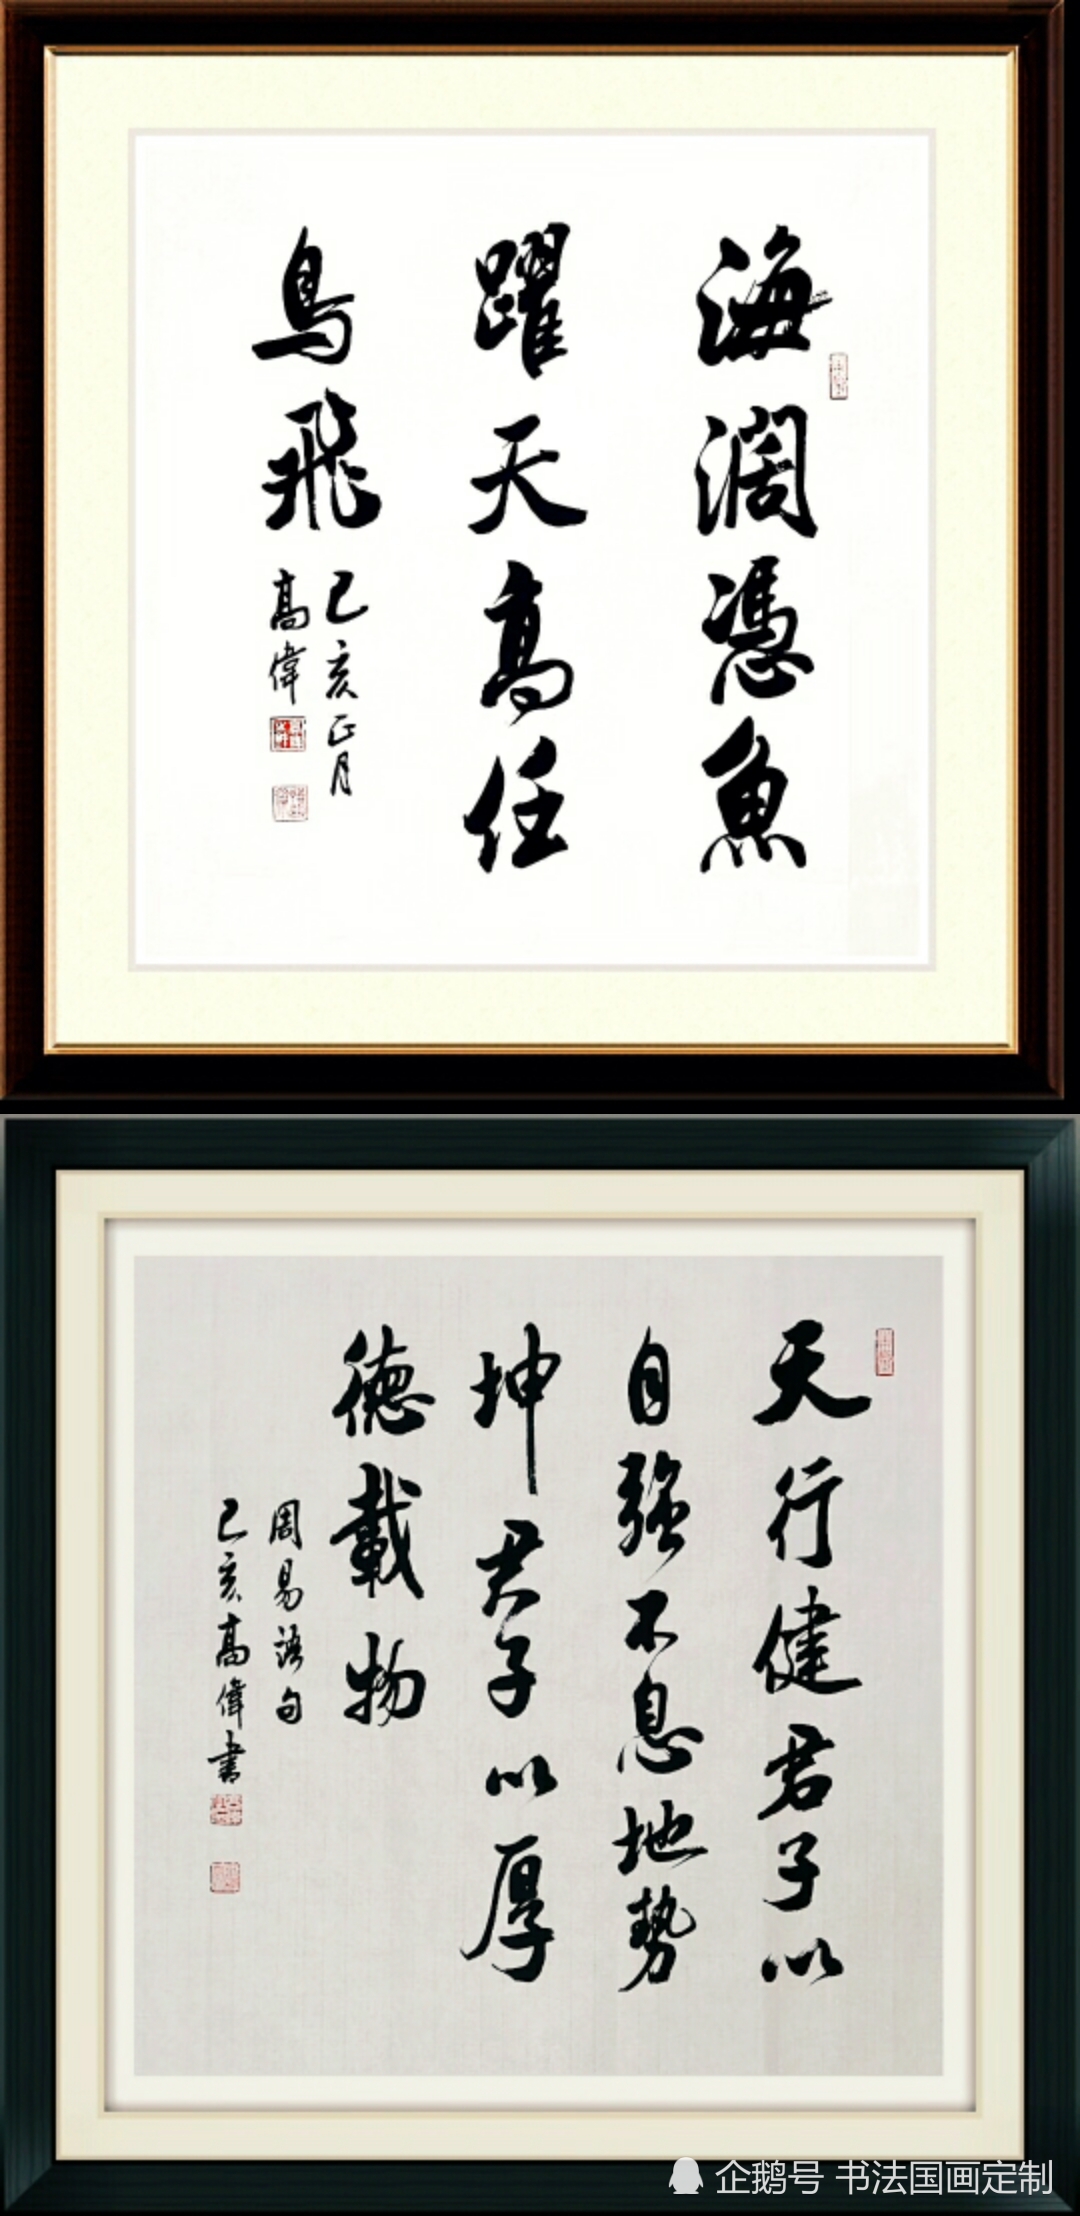 海濶憑魚
躍天高任
鳥飛
己亥正月
高偉
天行健君子以
自強不息地勢
坤君子以厚
德載物
周易語句
己亥高偉書
企鹅号 书法国画定制